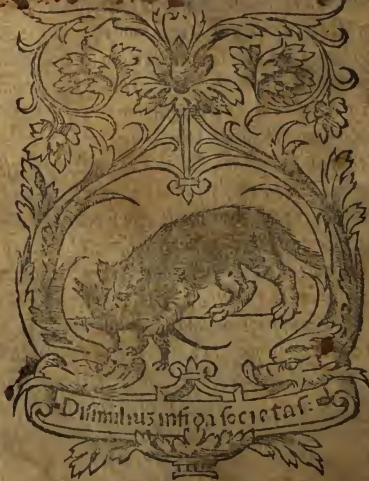 Disimiliuz infi da societas: